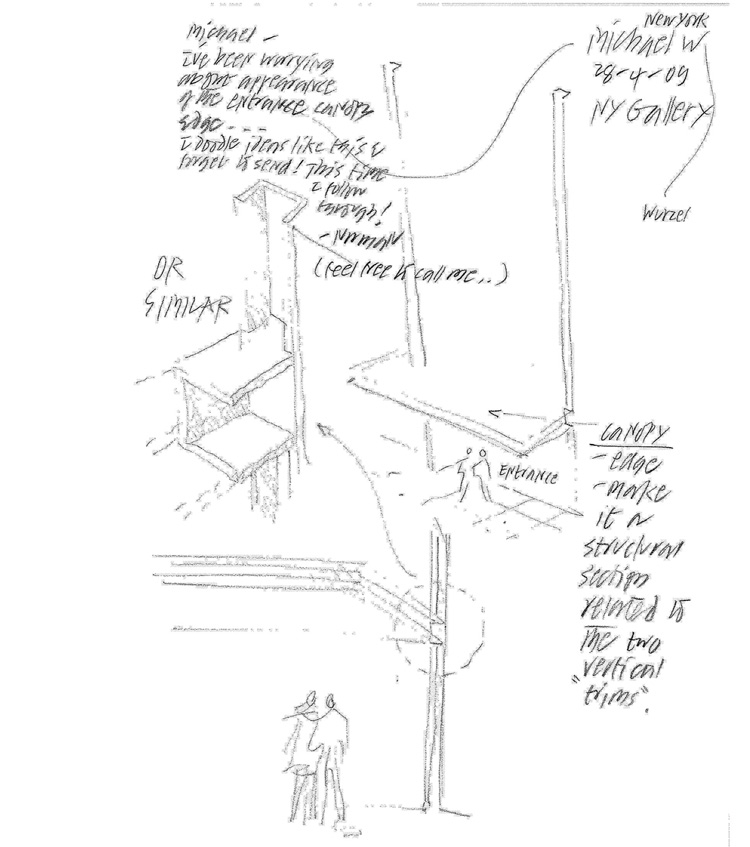 Michael –
I've been worrying
about appearance
of the entrance canopy
edge - - -
I doodle ideas like this &
forget to send! This time
I follow
through!
- Norman
(feel free to call me,..)
New York
Michael W
28-4-09
NY Gallery
Wurzel
OR
SIMILAR
ENTRANCE
CANOPY
- edge
- make
it a
structural
section
related to
the two
vertical
"trims".